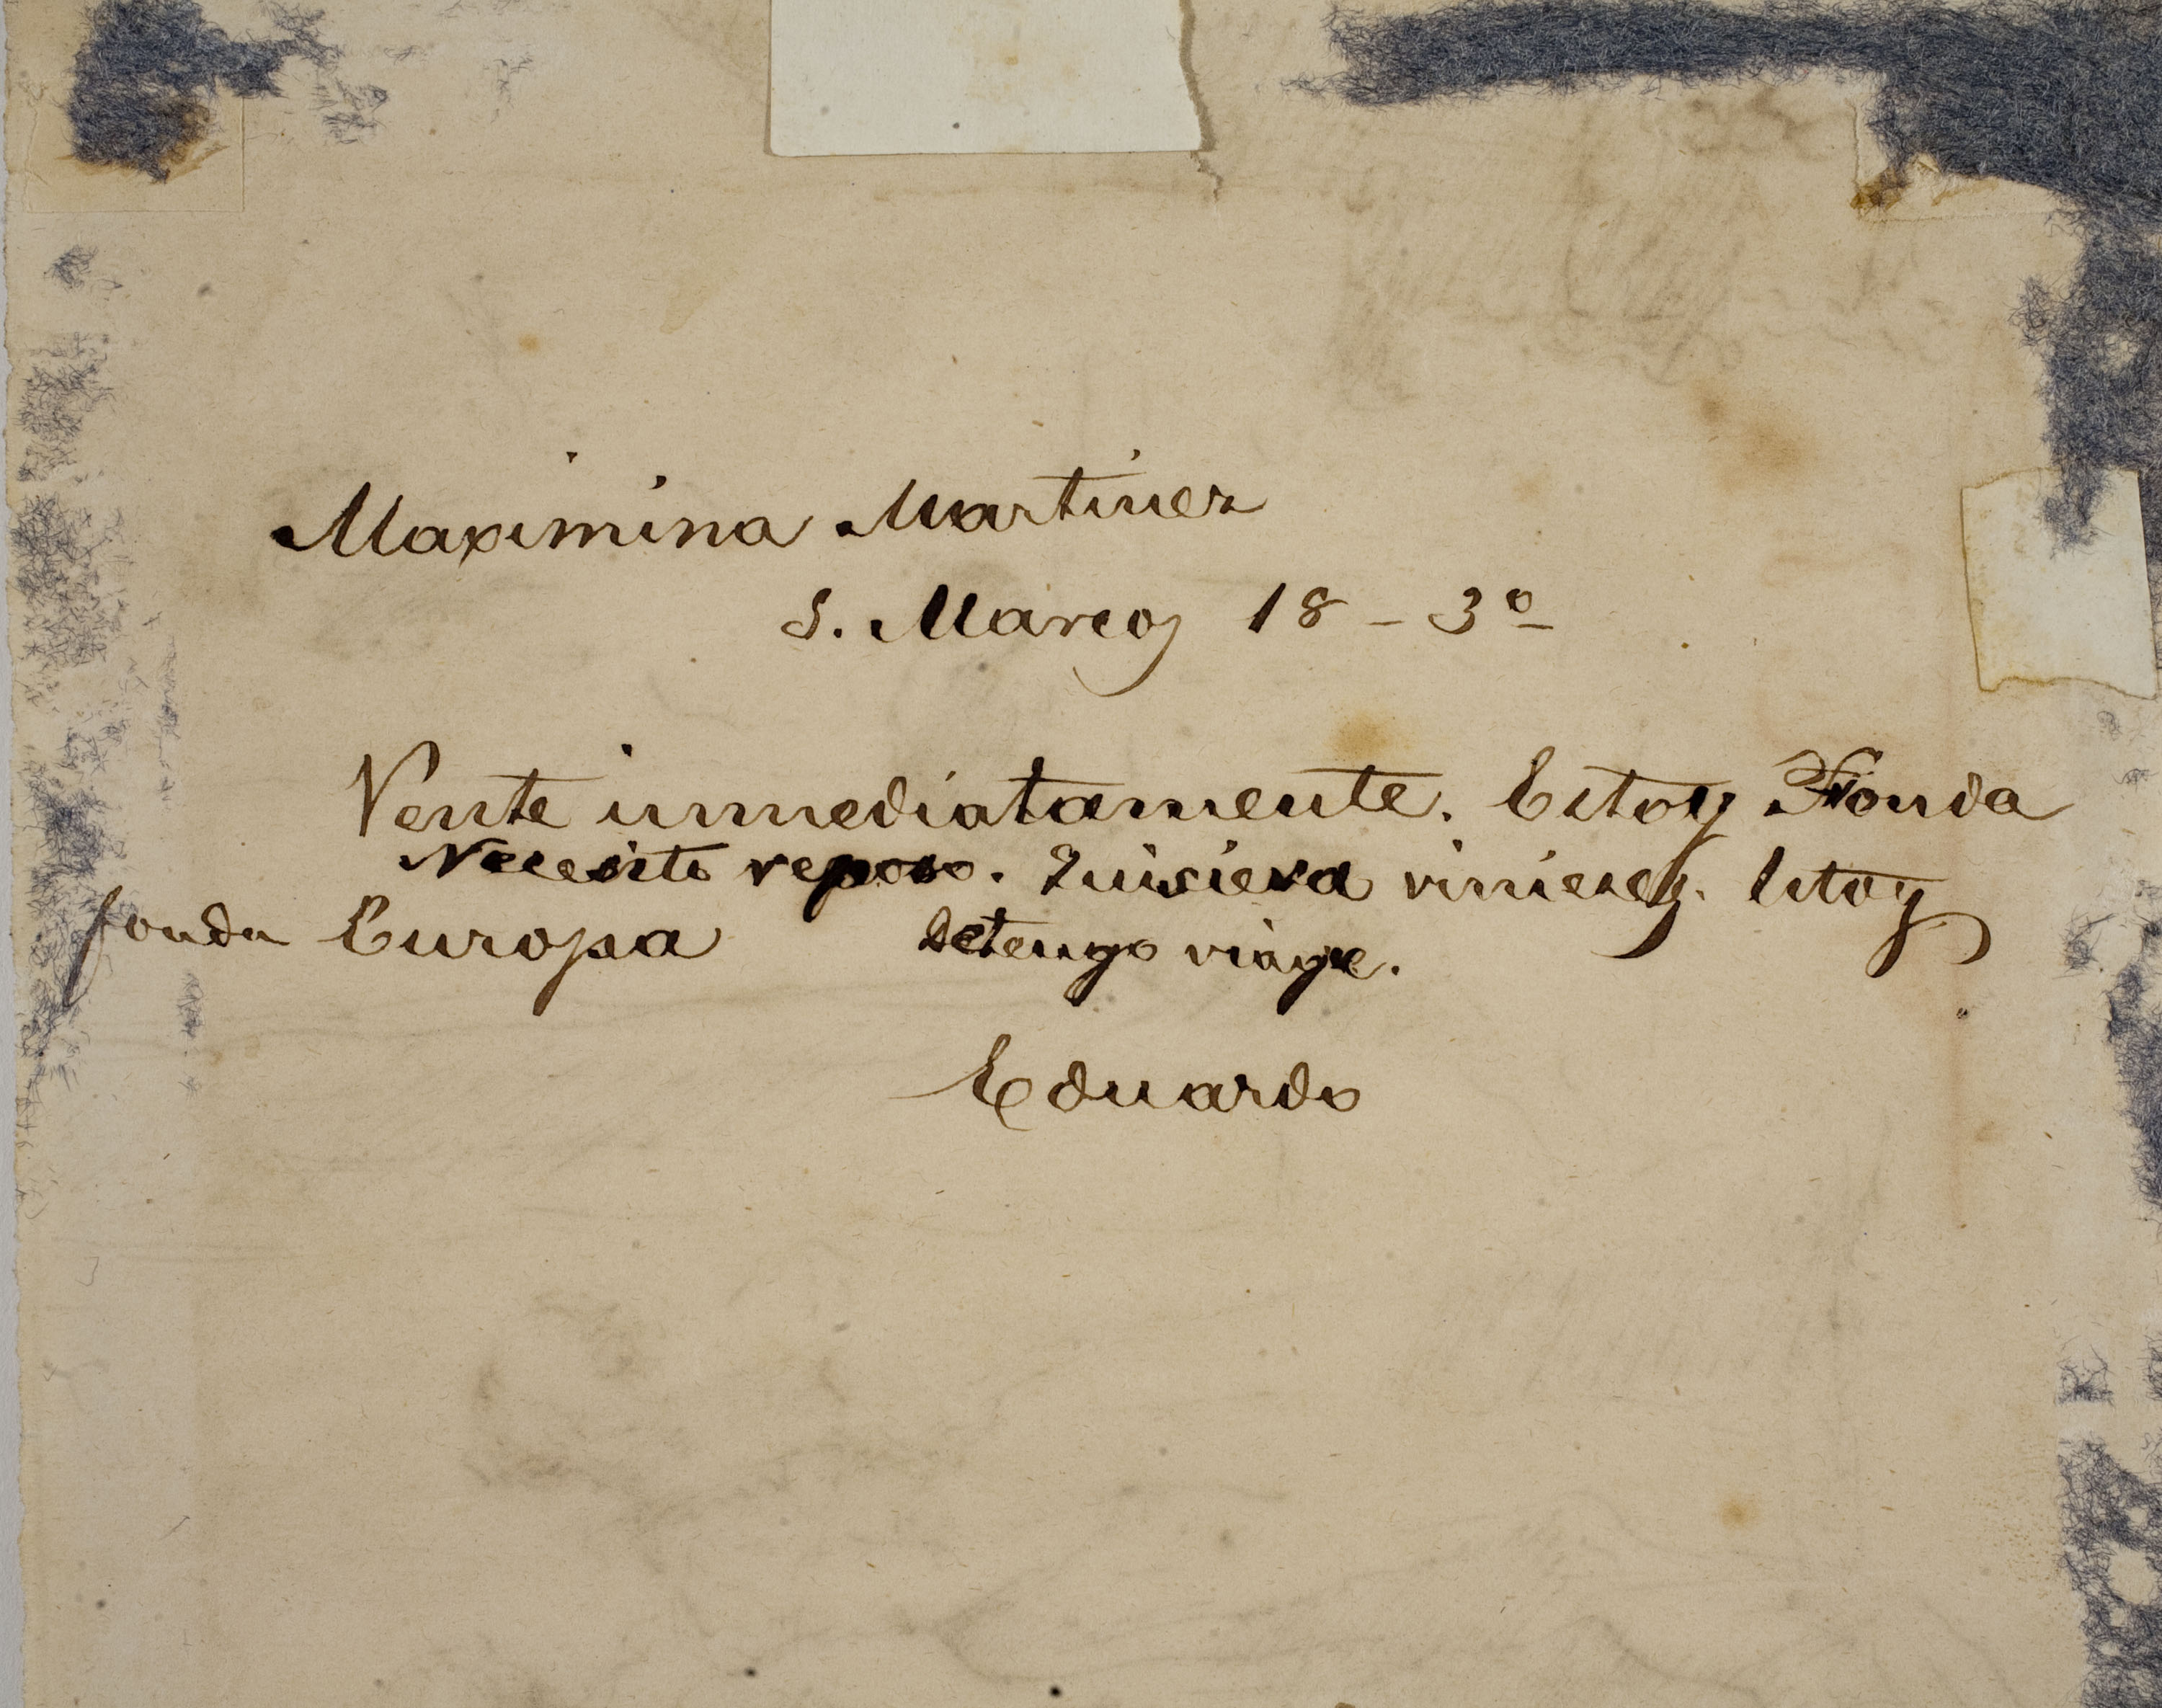 Maximina Martinez
S. Marcos 18 - 3º
Vente inmediatamente. Estoy Fonda
Necesito reposo. Quisiera vinieses. Estoy
fonda Europa detengo viage.
Eduardo